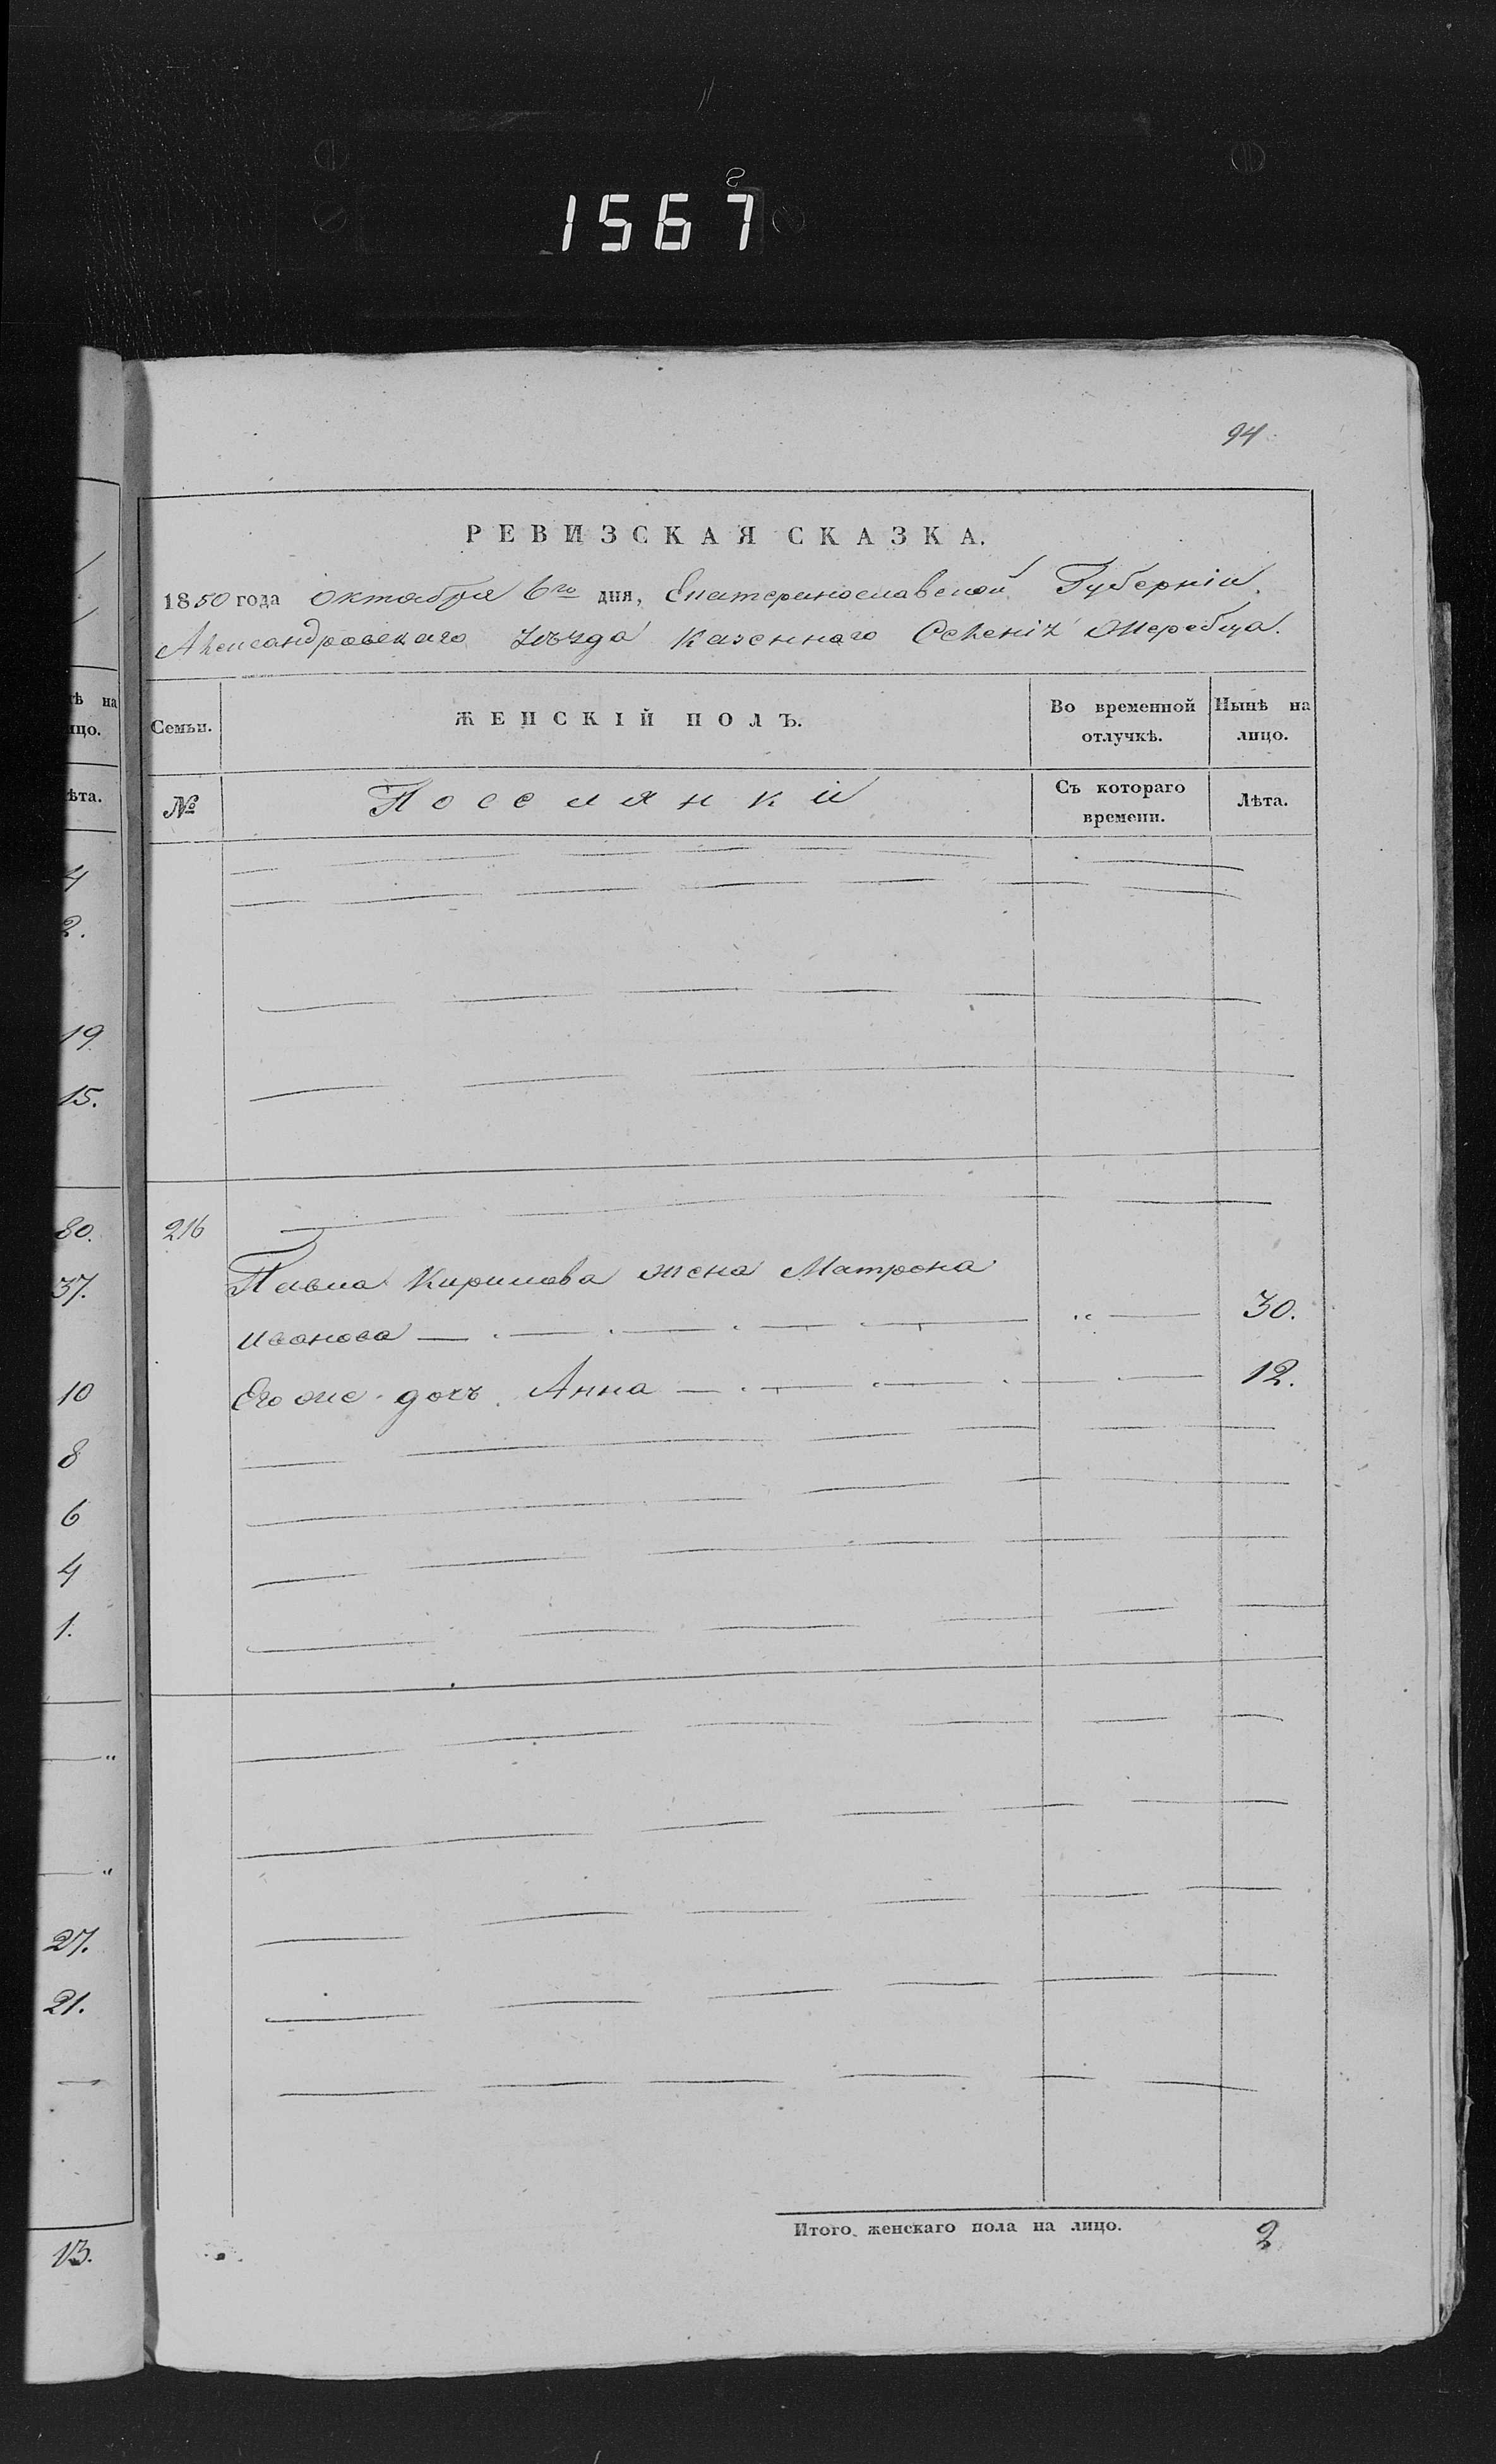 1567
94
РЕВИЗСКАЯ СКАЗКА.
1850 года Октября 6го дня, Екатеринославской Губерніи
Александровскаго уѣзда Казеннаго Селенія Жеребца.
ѣ на
ицо.
Семьи.
ЖЕНСКІЙ ПОЛЪ.
Во временной
отлучкѣ.
Нынѣ на
лицо.
ѣта.
№
Поселянки
Съ котораго
времени.
Лѣта.
4
2.
19.
15.
80.
216
37.
Павла Кирилова жена Матрона
Иванова 30.
10
Его же дочь Анна 12.
8
6
4
1.
27.
21.
Итого женскаго пола на лицо. 2
13.